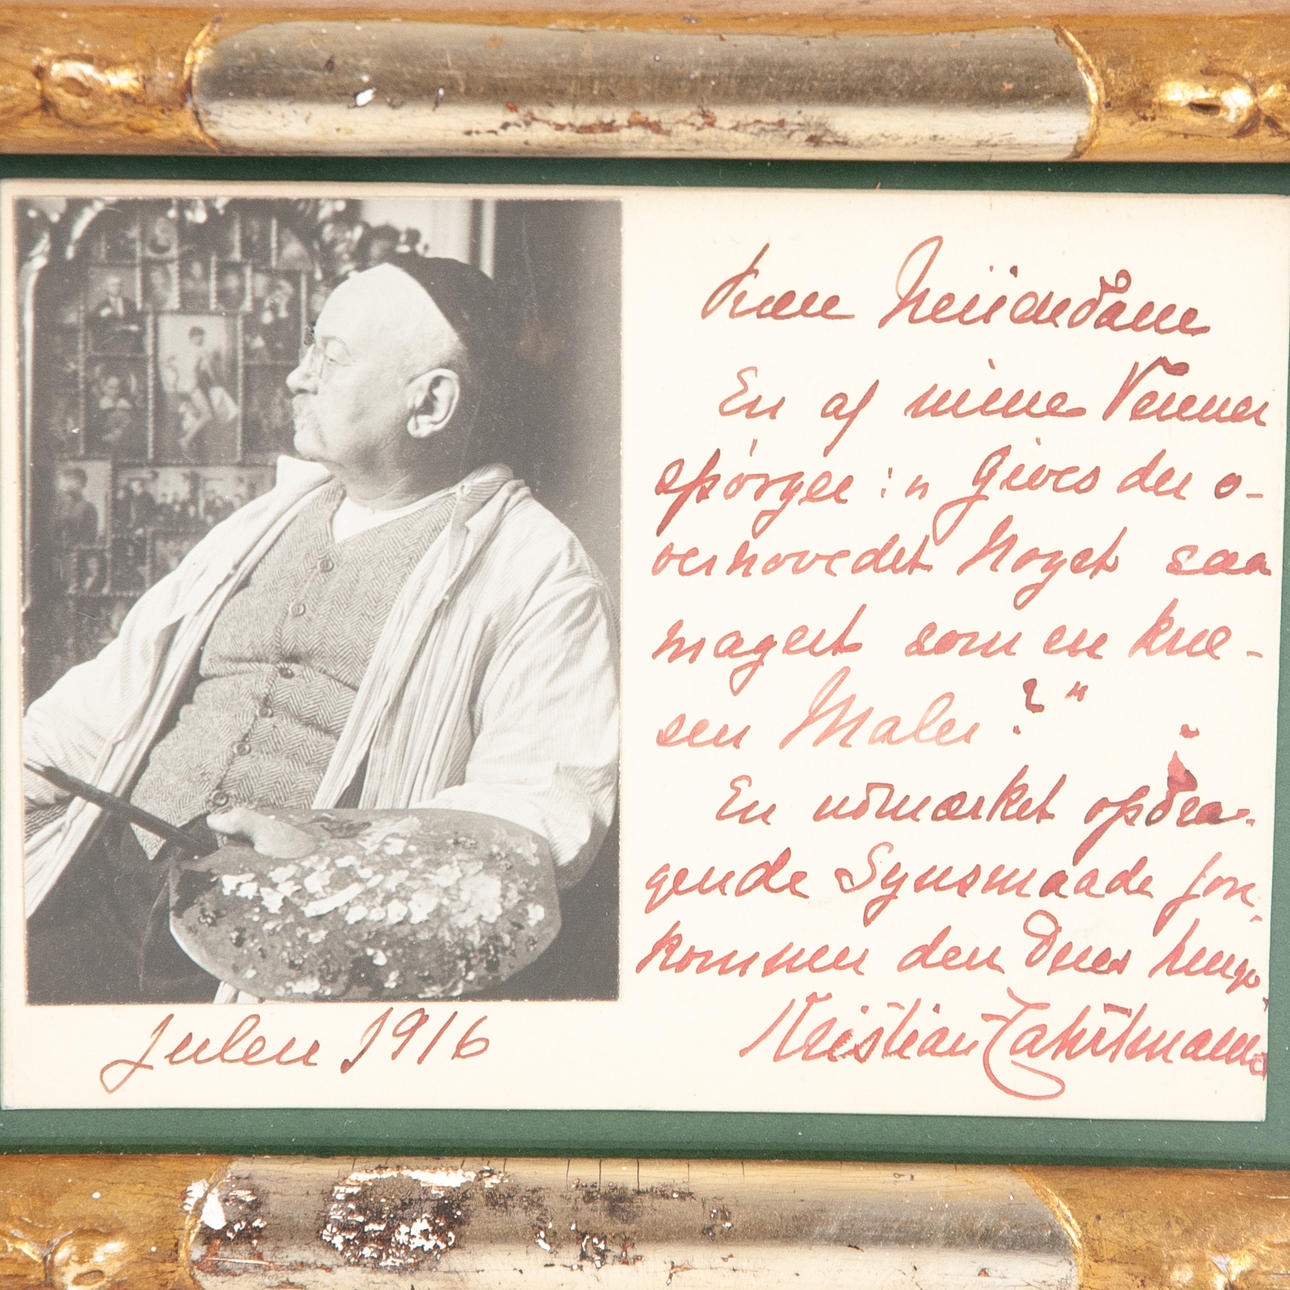 Kære Neiiendam
En af mine Venner
spørger: "Gives der o-
verhovedet Noget saa
magert som en kne-
sen Maler?"
En udmærket opdra-
gende Synsmaade
kommen den
Kristian Zahrtmann
Julen 1916